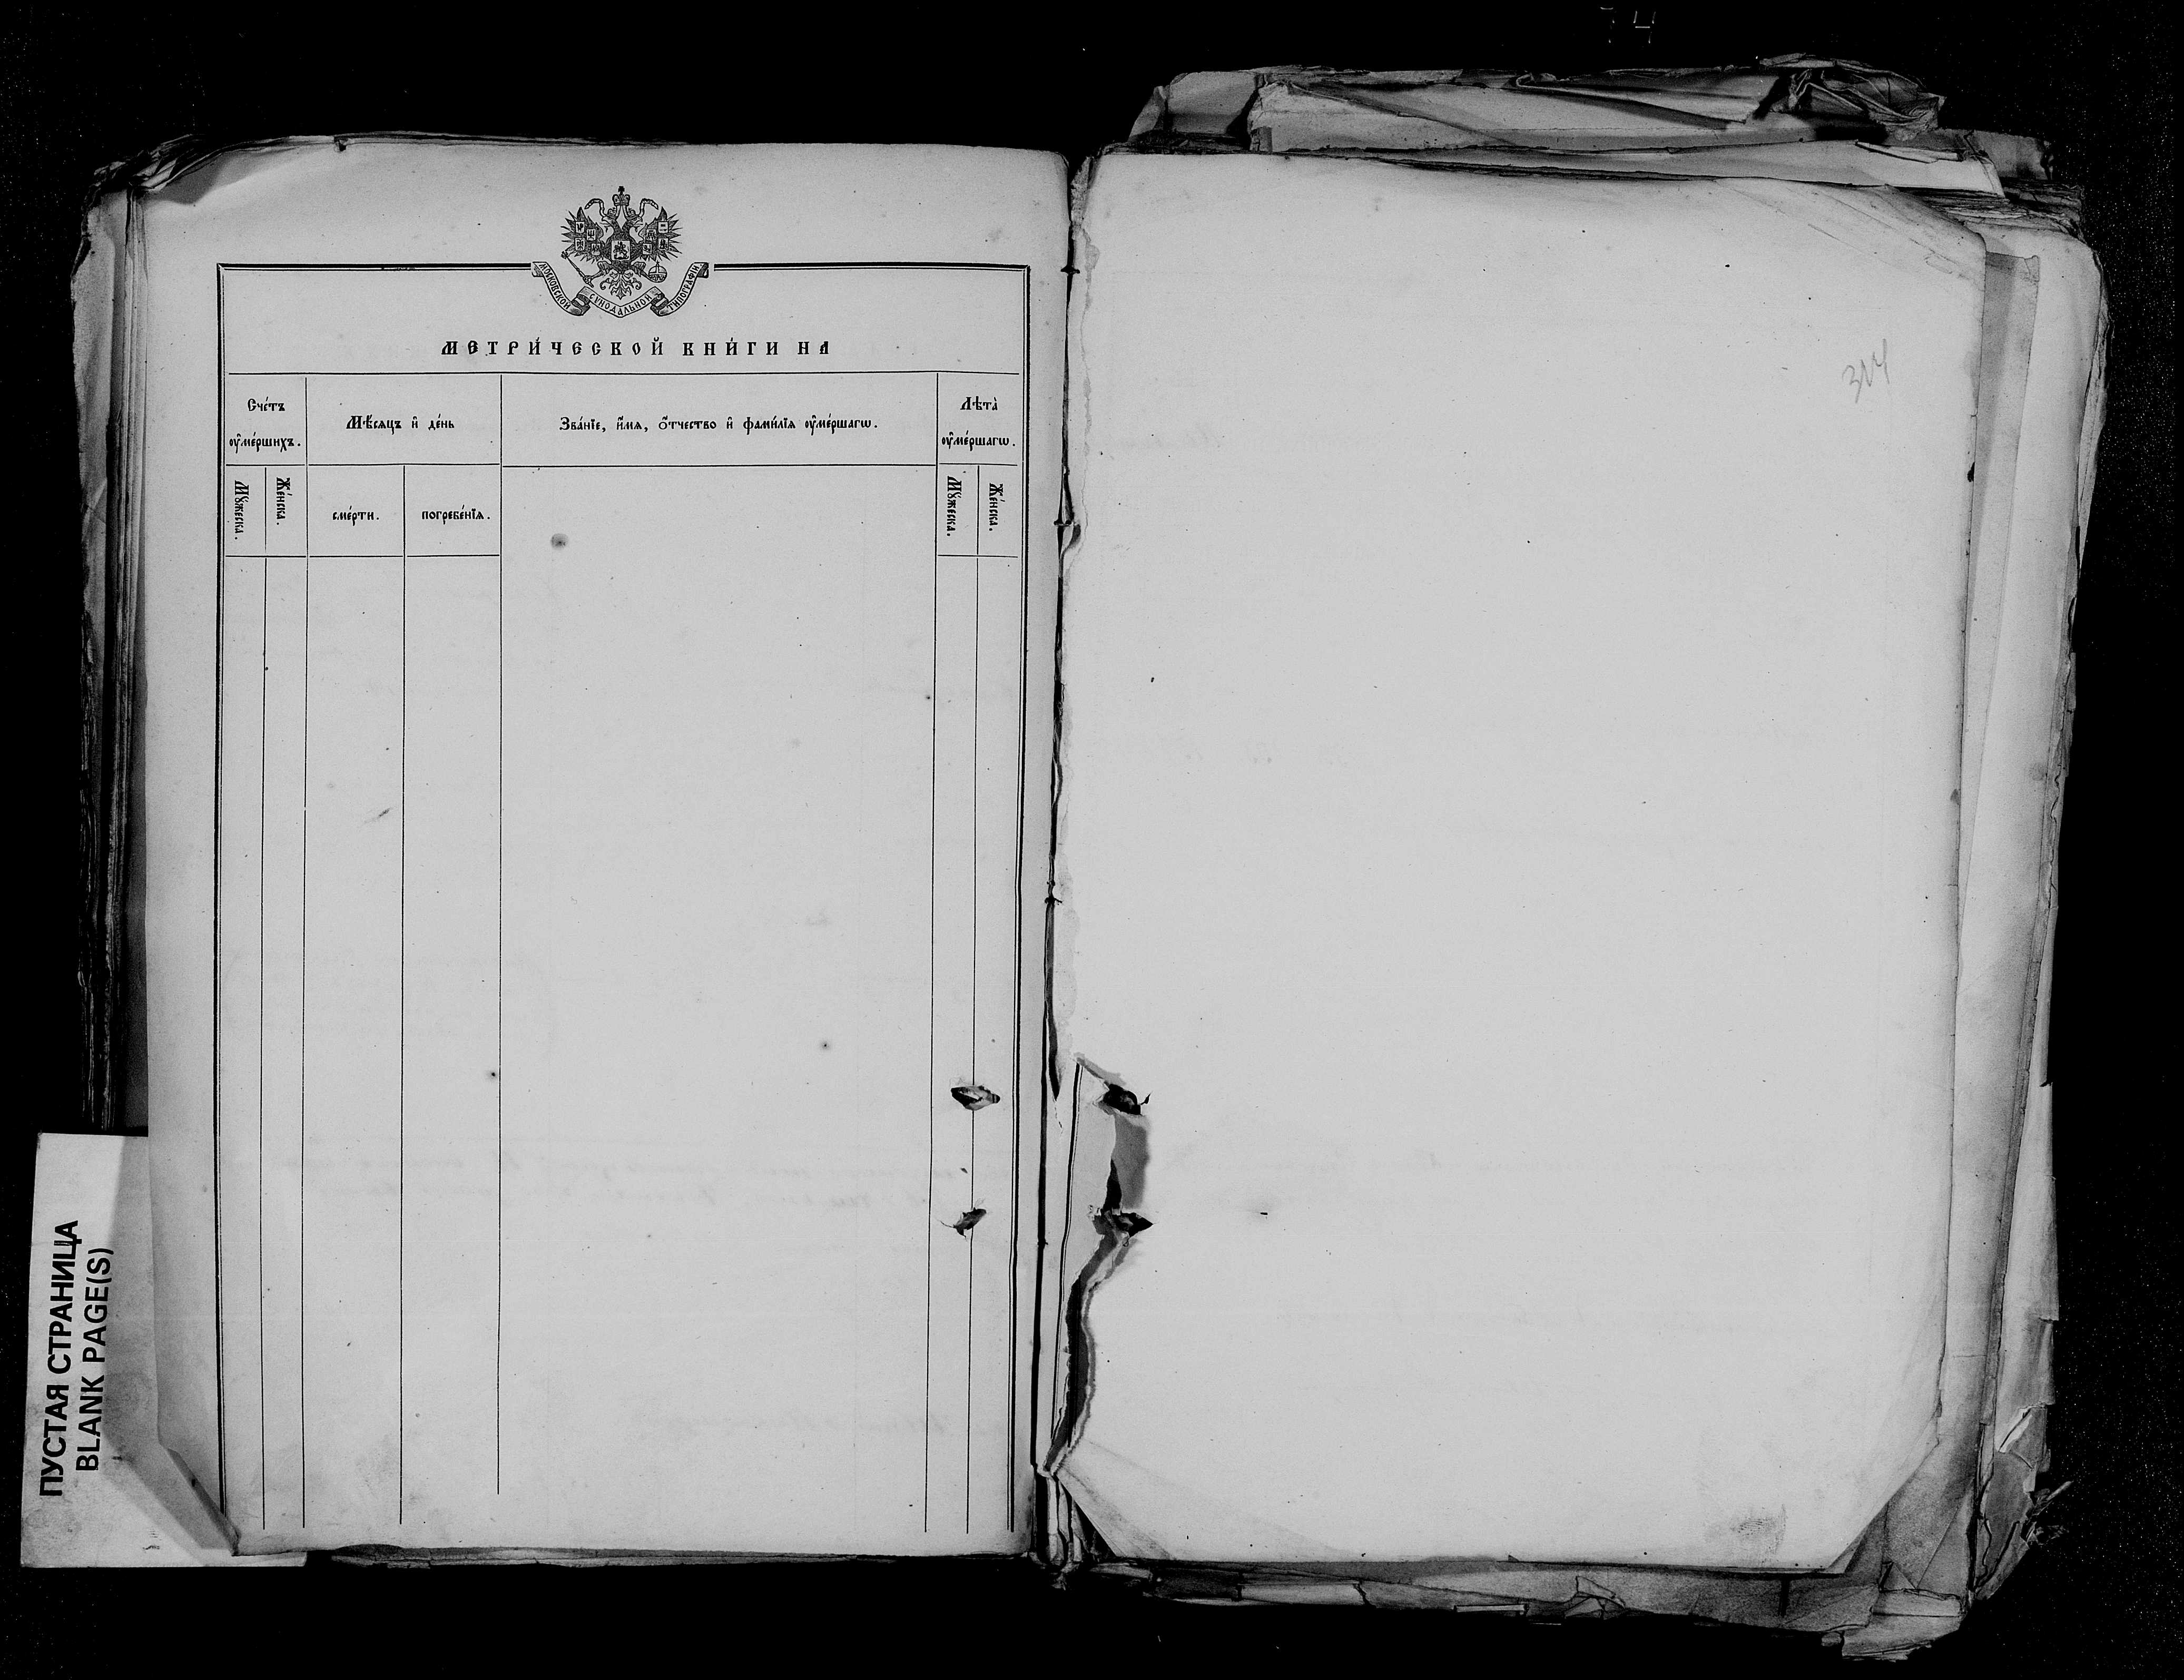 МОСКОВСКОЙ СѴНОДАЛЬНОЙ ТИПОГРАФІИ
МЕТРИ́ЧЕСКОЙ КНИ́ГИ НА
Сче́тъ ᲂу҆ме́ршихъ.
Мѣ́сяцъ и҆ де́нь
Зва́нїе, и҆́мѧ, ѻ҆́тчество и҆ фами́лїѧ ᲂу҆ме́ршагѡ.
Лѣта̀ ᲂу҆ме́ршагѡ.
Мꙋ́жеска.
Же́нска.
сме́рти.
погребе́нїѧ.
Мꙋ́жеска.
Же́нска.
314
ПУСТАЯ СТРАНИЦА
BLANK PAGE(S)